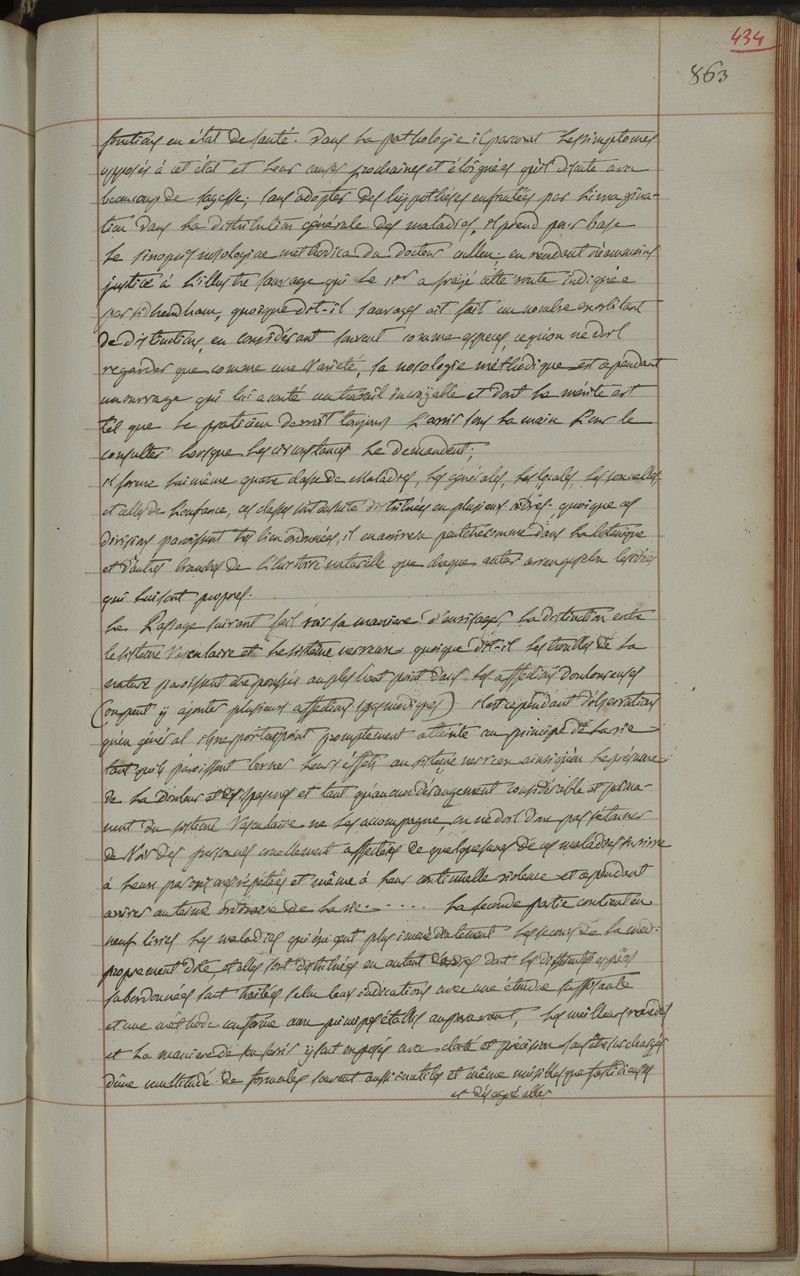 434
863
fonctions en état de santé. Dans la pathologie il parcourt les simptomes
opposés à cet état et leur causes prochaines et éloignées qu'il discute avec
beaucoup de sagesse; sans adopter des hippothèses enfantées par l'imagina-
tion dans la distribution générale des maladies, il prend pour base
le sinopsis nosologiae methodica du Docteur cullen; en rendant néanmoins
justice à l'illustre sauvage qui le 1er a frayé cette route indiquée
par sidhendham, quoique dit-il sauvages ait fait un nombre exorbitant
de distinctions, en considérant souvent comme especes, ce qu'on ne doit
regarder que comme une variété, sa nosologie méthodique est cependant
un ouvrage qui lui a couté un travail incroyable et dont le mérite est
tel que le praticien devroit toujours l'avoir sous la main pour le
consulter lorsque les circonstances le demandent;
il forme lui même quatre classes de maladies, les générales, les locales, les sexuelles,
et celles de l'enfance, ces classes sont ensuite distribuées en plusieurs ordres. quoique ces
divisions paroissent très bien ordonnées, il en arrivera peut être comme dans la botanique
et d'autres branches de l'histoire naturelle que chaque auteur arrange selon les idées
qui lui sont propres.
Le passage suivant fait voir sa maniere d'envisager la distinction entre
le sisteme vasculaire et le sistème nerveux quoique dit-il les troubles de la
nature paroissent être poussés au plus haut point dans les affections douloureuses
(on peut y ajouter plusieurs affections spasmodiques) il est cependant d'observation
qu'en général ils ne portent point promptement atteinte au principe de la vie
tant qu'ils paroissent borner leurs effets au sistème nerveux ainsi qu'on le présume
de la douleur et des spasmes et tant qu'aucun dérangement considérable et perma-
nent du sistème vasculaire ne les accompagne, on ne doit donc pas s'étonner
de voir des personnes cruellement affectées de quelques unes de ces maladies survivre
à leurs paroxismes répétées et même à leur continuelle violence et cependant
arriver au terme ordinaire de la vie. . . . . . La seconde partie contient en
neuf livres les maladies qui éxigent plus immédiatement les secours de la med:
proprement dite et elles sont distribuées en autant d'ordres dont les différentes espèces
subordonnées sont traitées selon leurs indications avec une étendue suffisante
et une méthode conforme aux principes établis auparavant, les meilleurs remedes
et la maniere de s'en servir y sont exposés avec clarté et précision sans être surchargés
d'une multitude de formules souvent aussi inutiles et même nuisibles que fastidieuses
et désagréables